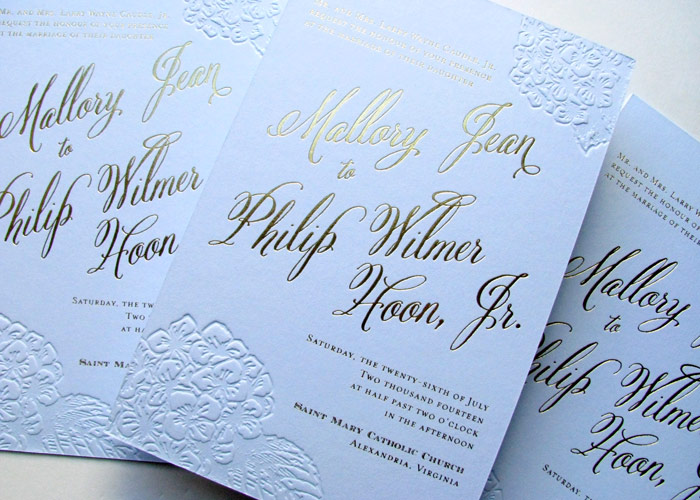 Mr. and Mrs. Larry Wayne
request the honour of your presence
at the marriage of their daughter
Mallory Jean
to
Philip Wilmer
Hoon, Jr.
Saturday, the twenty-sixth of July
Two thousand fourteen
at half past two o'clock
in the afternoon
Saint Mary Catholic Church
Alexandria, Virginia
Mr. and Mrs. Larry Wayne
request the honour of your presence
at the marriage of their daughter
Mallory Jean
to
Philip Wilmer
Hoon
Saturday, the twen
Two thou
at half
Saint Ma
Mr. and Mrs. Larry
request the honour of
at the marriage of their
Mallory
to
hilip Wilmer
Hoon
Saturday, the